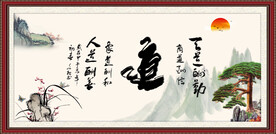 天道酬勤
商道酬信
道
家道酬和
人道酬善